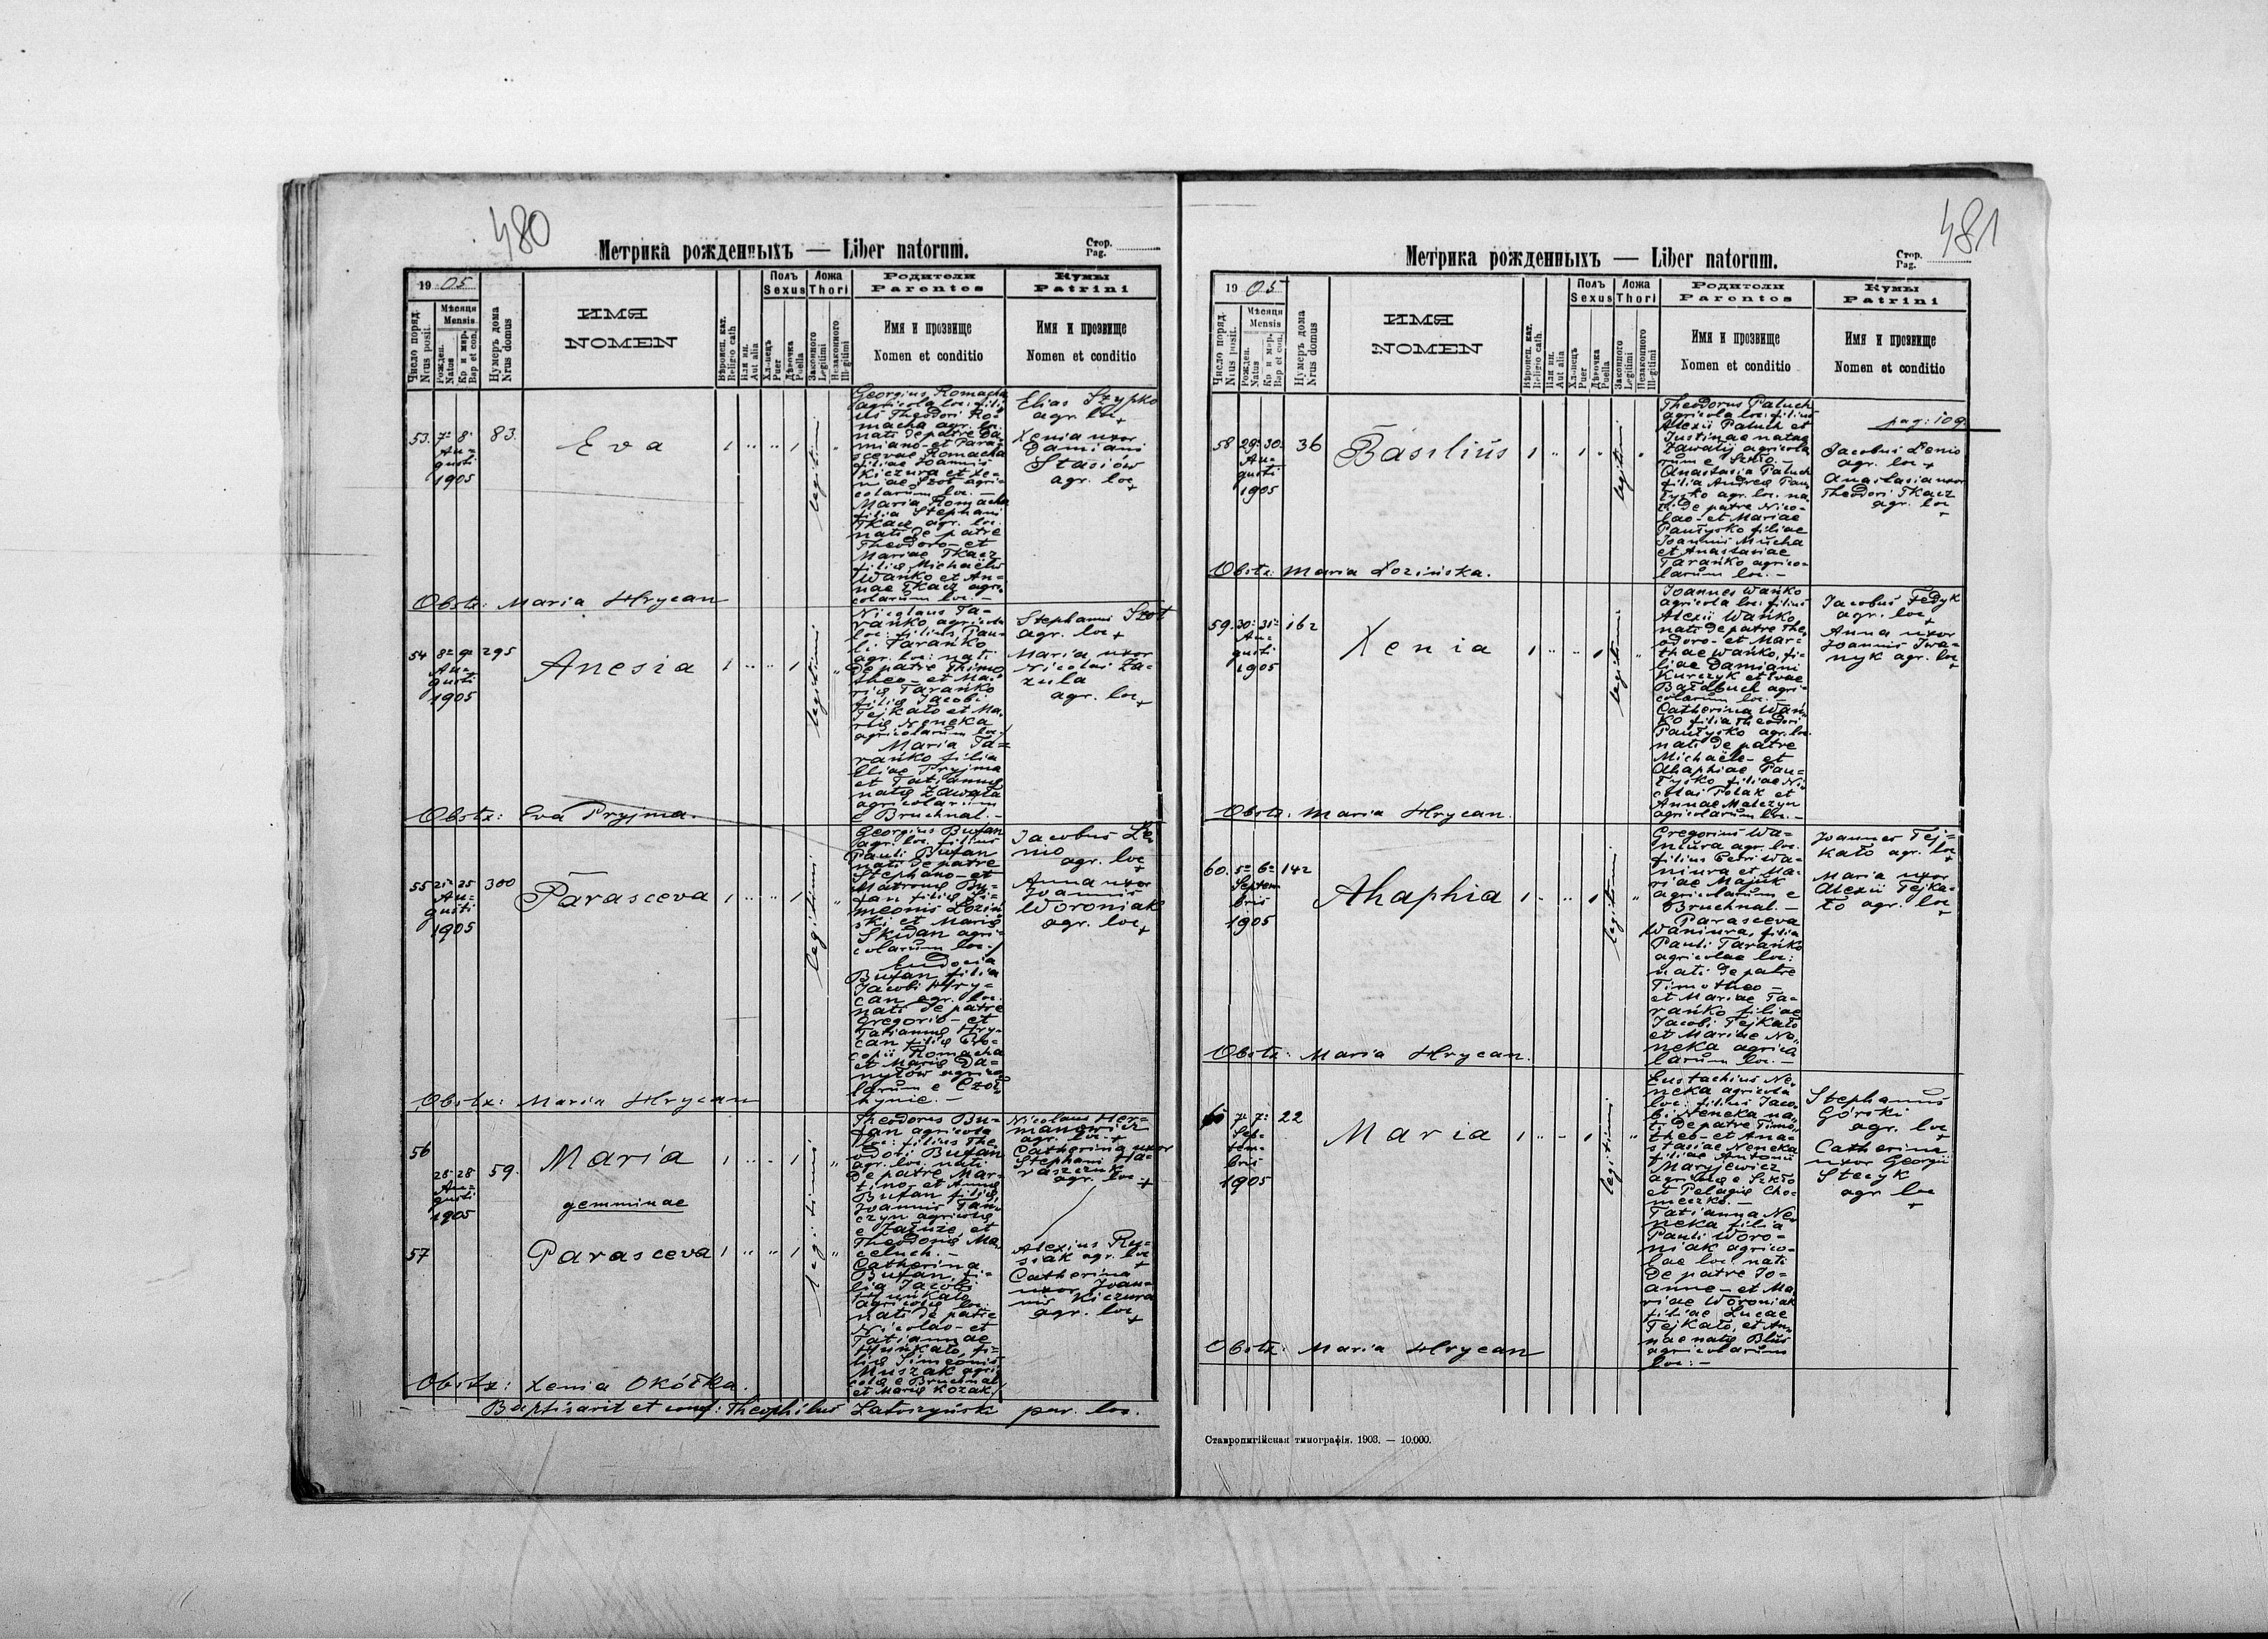 480
Метрика рожденныхъ — Liber natorum.
Стор.
Pag.
19 05
Мѣсяця
Mensis
Число поряд.
Nrus posit.
Рожден.
Natus
Кр и мѵр.
Bap et con.
Нумеръ дома
Nrus domus
ИМЯ
NOMEN
Вѣроисп. кат.
Religio cath
Или ин.
Aut alia
Полъ
Sexus
Хлопецъ
Puer
Дѣвочка
Puella
Ложа
Thori
Законного
Legitimi
Незаконного
Illegitimi
Родители
Parentes
Имя и прозвище
Nomen et conditio
Кумы
Patrini
Имя и прозвище
Nomen et conditio
53. 7. 8. Au-
gusti
1905
83.
Eva
1 " " 1 legitimi "
Georgius Romacha
agricola loc: fili-
us Theodori Ro-
macha agr. loc.
nati de patre Da-
miano - et Para-
scevae Romacha
filiae Joannis
Kiczura et Xe-
niae Szot agri-
colarum loc. -
Maria Romacha
filia Stephani
Tkacz agr. loc.
nati de patre
Theodoro - et
Mariae Tkacz
filię Michaelis
Wańko et An-
nae Tkacz agri-
colarum loc. -
Elias Szypko
agr. loc
+
Xenia uxor
Damiani
Stasiów
agr. loc
+
Obstx: Maria Hrycan
54 8. 9. Au-
gusti
1905
295
Anesia
1 " " 1 legitimi "
Nicolaus Ta-
rańko agricola
loc: filius Pau-
li Tarańko
agr. loc: nati
de patre Thimo-
theo - et Ma-
rię Tarańko
filię Jacobi
Tejkało et Ma-
rię Neneka
agricolarum loc./
Maria Ta-
rańko filia
Eliae Pryjma
et Tatiannę
natę Zawała
agricolarum
e Bruchnal. -
Stephanus Szot
agr. loc +
Maria uxor
Nicolai Za-
zula
agr. loc
+
Obstx: Eva Pryjma.
55 21. 25 Au-
gusti
1905
300
Parasceva
1 " " 1 legitimi "
Georgius Bufan
agr. loc. filius
Pauli Bufan
nati de patre
Stephano - et
Matronę Bu-
fan filię Si-
meonis Łoziń-
ski et Marię
Skidan agri-
colarum loc./
Eudocia
Bufan filia
Jacobi Hry-
can agr. loc.
nati de patre
Gregorio - et
Tatiannę Hry-
can filię Pro-
copii Romacha
et Marię Da-
nyłów agrico-
larum e Czoł-
hynie. -
Jacobus Le-
nio
agr. loc
+
Anna uxor
Joannis
Woroniak
agr. loc
+
Obstx: Maria Hrycan
56
28 28 Au-
gusti
1905
59.
Maria
1 " " 1 legitimi "
gemminae
57
Parasceva
1 " " 1 legitimi "
Theodorus Bu-
fan agricola
loc: filius The-
odoti Bufan
agr. loc. nati
de patre Mar-
tino - et Annę
Bufan filię
Joannis Tan-
czyn agricolę
e Załuże, et
Theodorię Ma-
celuch. -
Catherina
Bufan, fi-
lia Jacobi
Huńkało
agricolę loc.
nati de patre
Nicolao - et
Tatiannae
Huńkało, fi-
lię Simeonis
Muszak agri-
colę e Bruchnal
et Marię Kozak/
Nicolaus Her-
manowicz
agr. loc. +
Catherina uxor
Stephani Ha-
raszczuk
agr. loc. +
Alexius Ru-
siak agr. loc
+
Catherina
uxor Joan-
nis Kiczura
agr. loc
+
Obstx: Xenia Okółka.
Baptisavit et conf: Theophilus Latoszyński par. loc.
481
Метрика рожденныхъ — Liber natorum.
Стор.
Pag.
19 05
Мѣсяця
Mensis
Число поряд.
Nrus posit.
Рожден.
Natus
Кр и мѵр.
Bap et con.
Нумеръ дома
Nrus domus
ИМЯ
NOMEN
Вѣроисп. кат.
Religio cath.
Или ин.
Aut alia
Полъ
Sexus
Хлопецъ
Puer
Дѣвочка
Puella
Ложа
Thori
Законного
Legitimi
Незаконного
Illegitimi
Родители
Parentes
Имя и прозвище
Nomen et conditio
Кумы
Patrini
Имя и прозвище
Nomen et conditio
58 29. 30. Au-
gusti
1905
36
Basilius
1 " 1 " legitimi "
Theodorus Paluch
agricola loc: filius
Alexii Paluch et
Justinae natae
Zawalij agricola-
rum e Szkło. -
Anastasia Paluch
filia Andreę Pau-
łysko agr. loc. na-
ti de patre Nico-
lao - et Mariae
Paułysko filiae
Joannis Mucha
et Anastasiae
Tarańko agrico-
larum loc. -
pag: 109.
Jacobus Lenio
agr. loc +
Anastasia uxor
Theodori Tkacz
agr. loc
+
Obstx: Maria Łozińska.
59. 30. 31. Au-
gusti
1905
162
Xenia
1 " " 1 legitimi "
Joannes Wańko
agricola loc: filius
Alexii Wańko
nati de patre The-
odoro - et Mar-
thae Wańko, fi-
liae Damiani
Kurczyk et Evae
Bałabuch agri-
colarum loc. -
Catherina Wań-
ko filia Theodori
Paułysko agr. loc.
nati de patre
Michaële - et
Ahaphiae Pau-
łysko filiae Ni-
colai Polak et
Annae Malczyn
agricolarum loc. -
Jacobus Fedyk
agr. loc
+
Anna uxor
Joannis Iwa-
nyk agr. loc
+
Obstx: Maria Hrycan.
60. 5. 6. Septem
bris
1905
142
Ahaphia
1 " " 1 legitimi "
Gregorius Wa-
niura agr. loc.
filius Petri Wa-
niura et Ma-
riae Majuk
agricolarum e
Bruchnal. -
Parasceva
Waniura, filia
Pauli Tarańko
agricolae loc:
nati de patre
Timotheo -
et Mariae Ta-
rańko filiae
Jacobi Tejkało
et Mariae Ne-
neka agrico-
larum loc. -
Joannes Tej-
kało agr. loc
+
Maria uxor
Alexii Tejka-
ło agr. loc
+
Obstx: Maria Hrycan.
7. 7. Sep-
tem-
bris
1905
22
Maria
1 " " 1 legitimi "
Eustachius Ne-
neka agricola
loc: filius Jaco-
bi Neneka na-
ti de patre Timo-
theo - et Ana-
stasiae Neneka
filiae Antonii
Maryjewicz
agricolę e Szkło
et Pelagię Cho-
meczko. -
Tatianna Ne-
neka filia
Pauli Woro-
niak agrico-
lae loc. nati
de patre Jo-
anne - et Ma-
riae Woroniak
filiae Lucae
Tejkało, et An-
nae natę Blus
agricolarum
loc: -
Stephanus
Górski
agr. loc
+
Catherina
uxor Georgii
Stecyk
agr loc
+
Obstx: Maria Hrycan
Ставропигійская типографія. 1903. — 10.000.